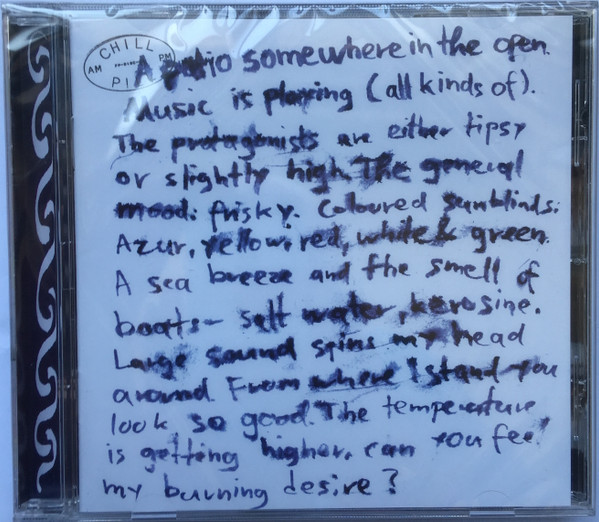 CHILL
AM PM
PILL
A patio somewhere in the open.
Music is playing (all kinds of).
The protagonists are either tipsy
or slightly high. The general
mood: frisky. Coloured sunblinds:
Azur, yellow, red, white & green.
A sea breeze and the smell of
boats - salt water, kerosine.
Large sound spins my head
around. From where I stand you
look so good. The temperature
is getting higher. can you feel
my burning desire?